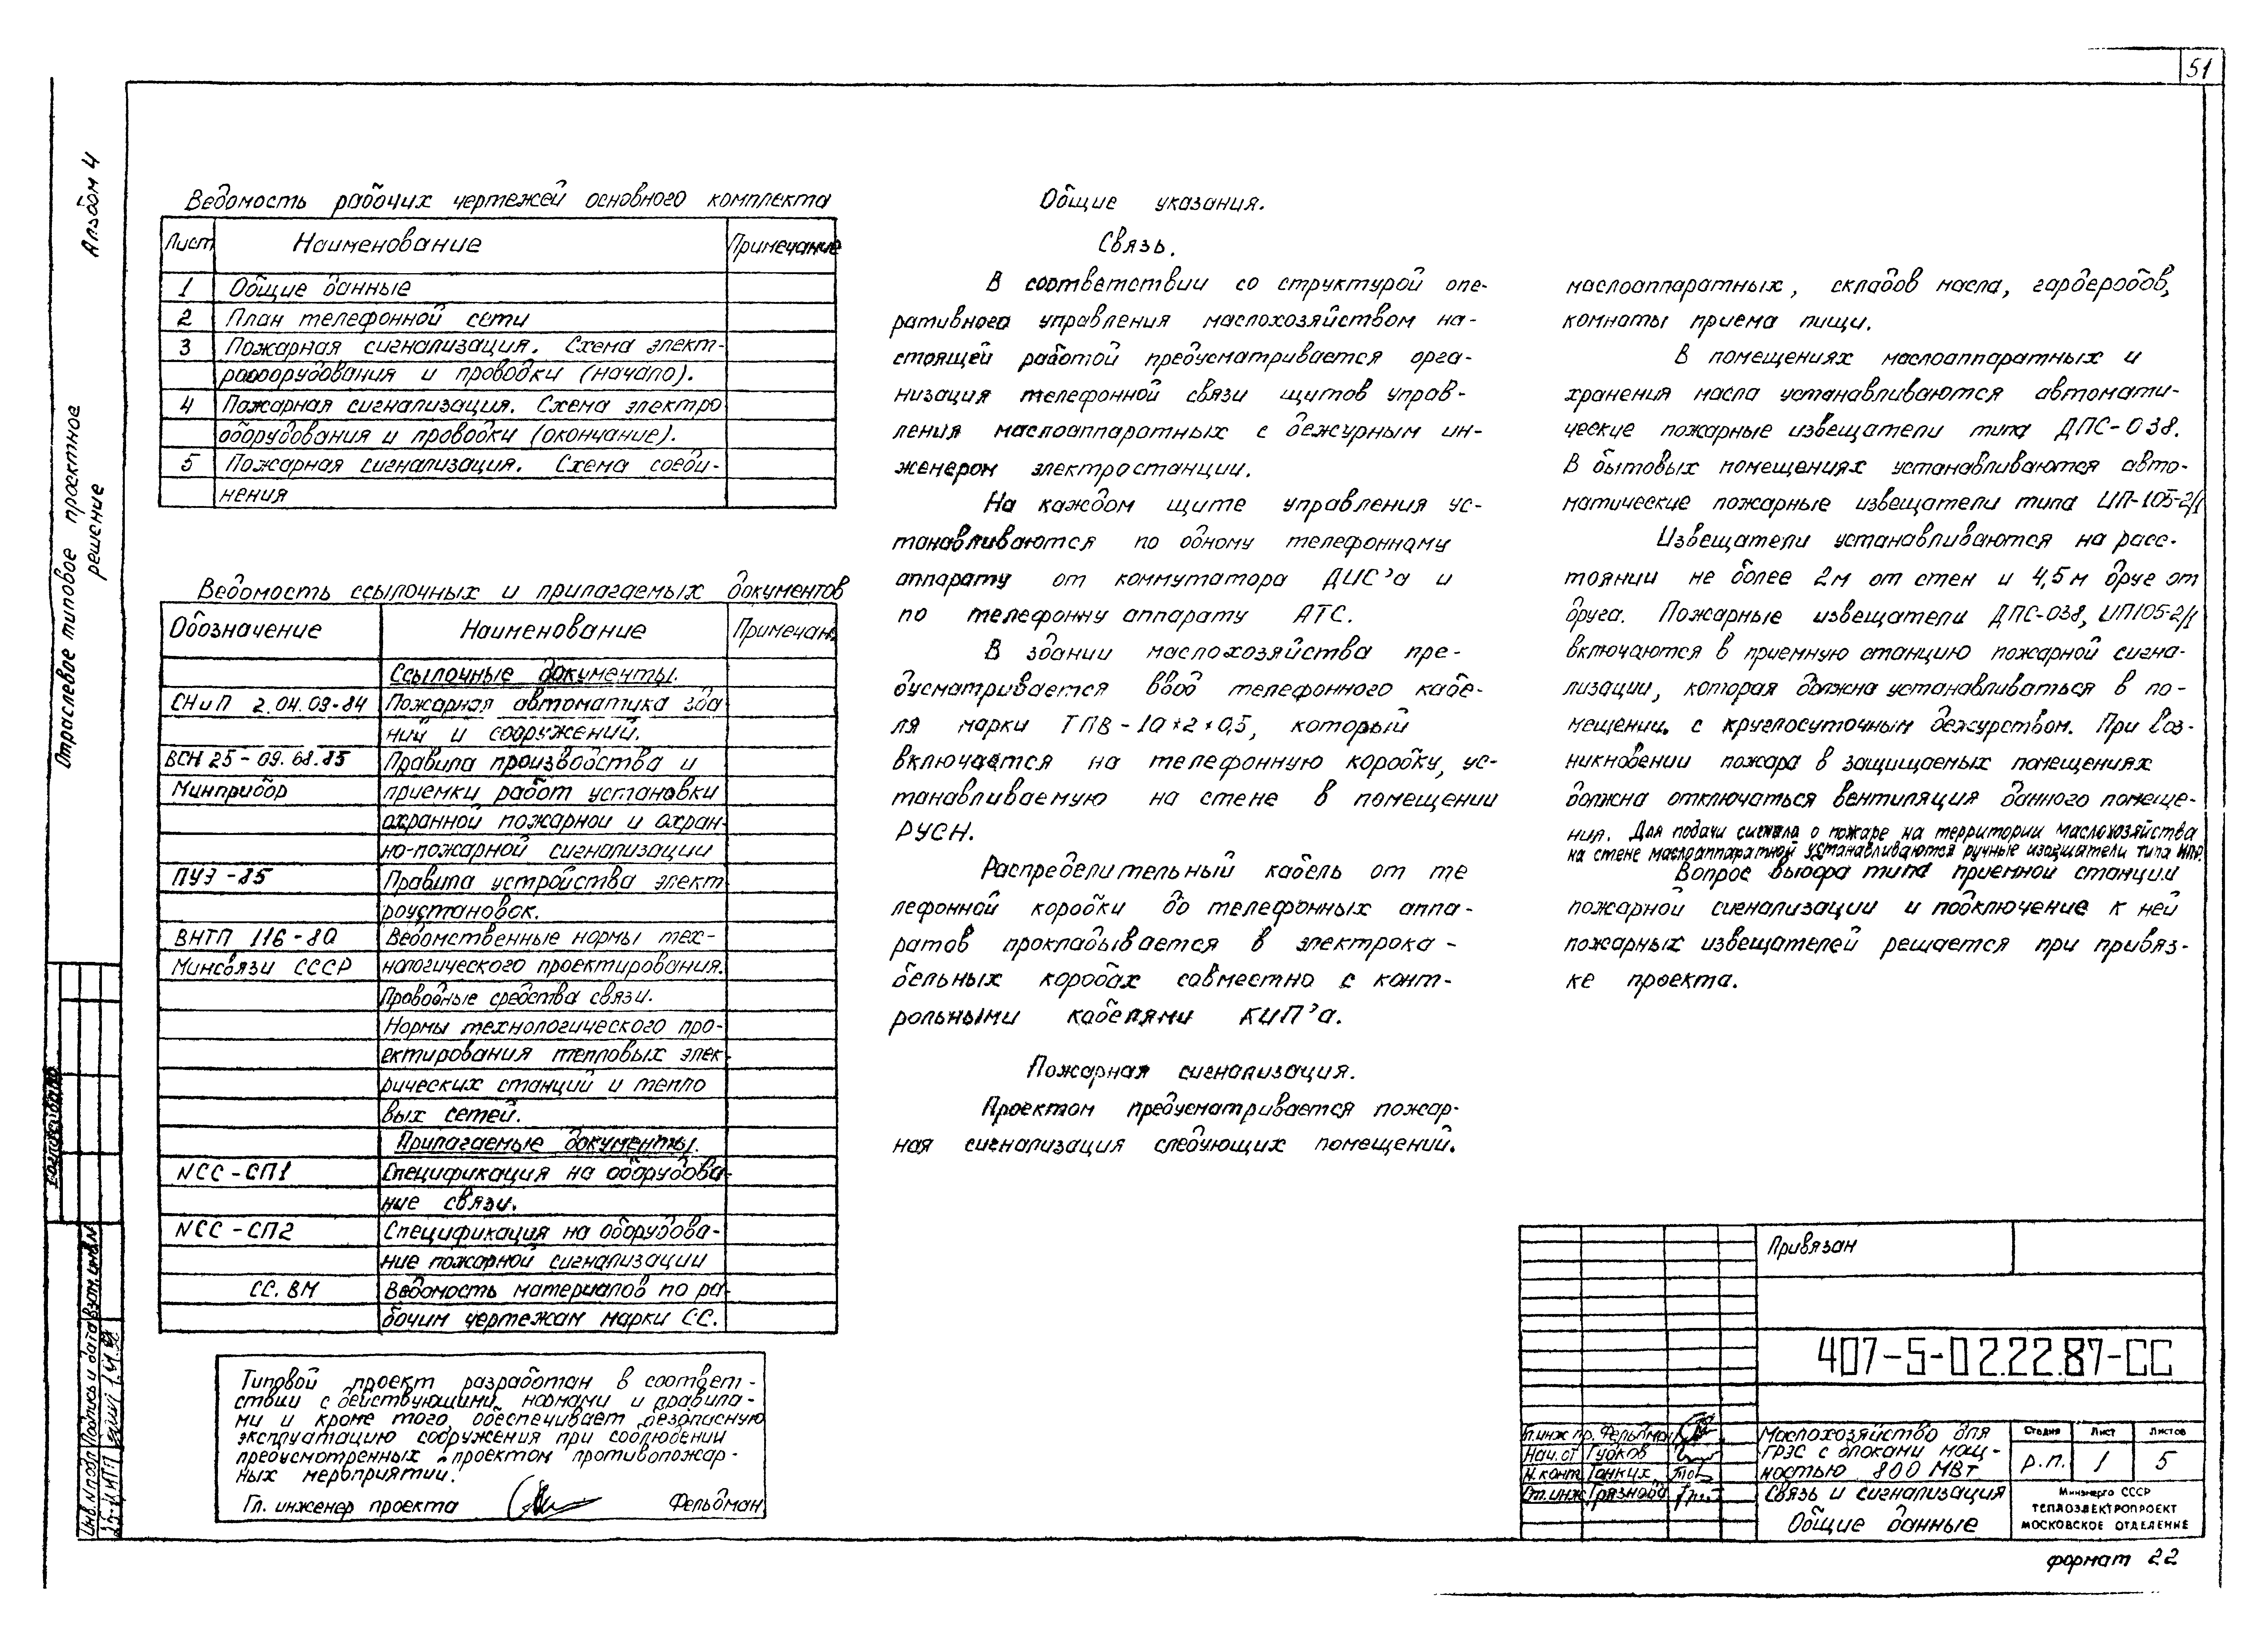 51
Альбом 4
Отраслевое типовое проектное
решение
Ведомость рабочих чертежей основного комплекта
Лист Наименование Примечание
1 Общие данные
2 План телефонной сети
3 Пожарная сигнализация. Схема элект-
рооборудования и проводки (начало).
4 Пожарная сигнализация. Схема электро
оборудования и проводки (окончание).
5 Пожарная сигнализация. Схема соеди-
нения
Ведомость ссылочных и прилагаемых документов
Обозначение Наименование Примечан.
Ссылочные документы.
СНиП 2.04.09-84 Пожарная автоматика зда
ний и сооружений.
ВСН 25-09.68.85 Правила производства и
Минприбор приемки работ установки
охранной пожарной и охран-
но-пожарной сигнализации
ПУЭ-85 Правила устройства элект
роустановок.
ВНТП 116-80 Ведомственные нормы тех-
Минсвязи СССР нологического проектирования.
Проводные средства связи.
Нормы технологического про-
ектирования тепловых элек-
рических станций и тепло
вых сетей.
Прилагаемые документы.
NСС-СП1 Спецификация на оборудова-
ние связи.
NСС-СП2 Спецификация на оборудова-
ние пожарной сигнализации
СС.ВМ Ведомость материалов по ра-
бочим чертежам марки СС.
Типовой проект разработан в соответ-
ствии с действующими нормами и правила-
ми и кроме того, обеспечивает безопасную
эксплуатацию сооружения при соблюдении
предусмотренных проектом противопожар-
ных мероприятий.
Гл. инженер проекта Фельдман
Общие указания.
Связь.
В соответствии со структурой опе-
ративного управления маслохозяйством на-
стоящей работой предусматривается орга-
низация телефонной связи щитов управ-
ления маслоаппаратных с дежурным ин-
женером электростанции.
На каждом щите управления ус-
танавливаются по одному телефонному
аппарату от коммутатора ДИС'а и
по телефонну аппарату АТС.
В здании маслохозяйства пре-
дусматривается ввод телефонного кабе-
ля марки ТПВ-10×2×0,5, который
включается на телефонную коробку, ус-
танавливаемую на стене в помещении
РУСН.
Распределительный кабель от те
лефонной коробки до телефонных аппа-
ратов прокладывается в электрока-
бельных коробах совместно с конт-
рольными кабелями КИП'а.
Пожарная сигнализация.
Проектом предусматривается пожар-
ная сигнализация следующих помещений.
маслоаппаратных, складов масла, гардеробов,
комнаты приема пищи.
В помещениях маслоаппаратных и
хранения масла устанавливаются автомати-
ческие пожарные извещатели типа ДПС-038.
В бытовых помещениях устанавливаются авто-
матические пожарные извещатели типа ИП-105-2/1
Извещатели устанавливаются на расс-
тоянии не более 2м от стен и 4,5м друг от
друга. Пожарные извещатели ДПС-038, ИП105-2/1
включаются в приемную станцию пожарной сигна-
лизации, которая должна устанавливаться в по-
мещении с круглосуточным дежурством. При воз-
никновении пожара в защищаемых помещениях
должна отключаться вентиляция данного помеще-
ния. Для подачи сигнала о пожаре на территории маслохозяйства
на стене маслоаппаратной устанавливаются ручные извещатели типа ИПР.
Вопрос выбора типа приемной станции
пожарной сигнализации и подключение к ней
пожарных извещателей решается при привяз-
ке проекта.
Привязан
407-5-02.22.87-СС
Гл.инж.пр. Фельдман
Нач.от Гудков
Н.конт Танких
Ст.инж Грязнова
Маслохозяйство для
ГРЭС с блоками мощ-
ностью 800 МВт
Связь и сигнализация
Общие данные
Стадия Лист Листов
р.п. 1 5
Минэнерго СССР
ТЕПЛОЭЛЕКТРОПРОЕКТ
МОСКОВСКОЕ ОТДЕЛЕНИЕ
формат 22
Согласовано
Инв.№подл Подпись и дата Взам.инв.№